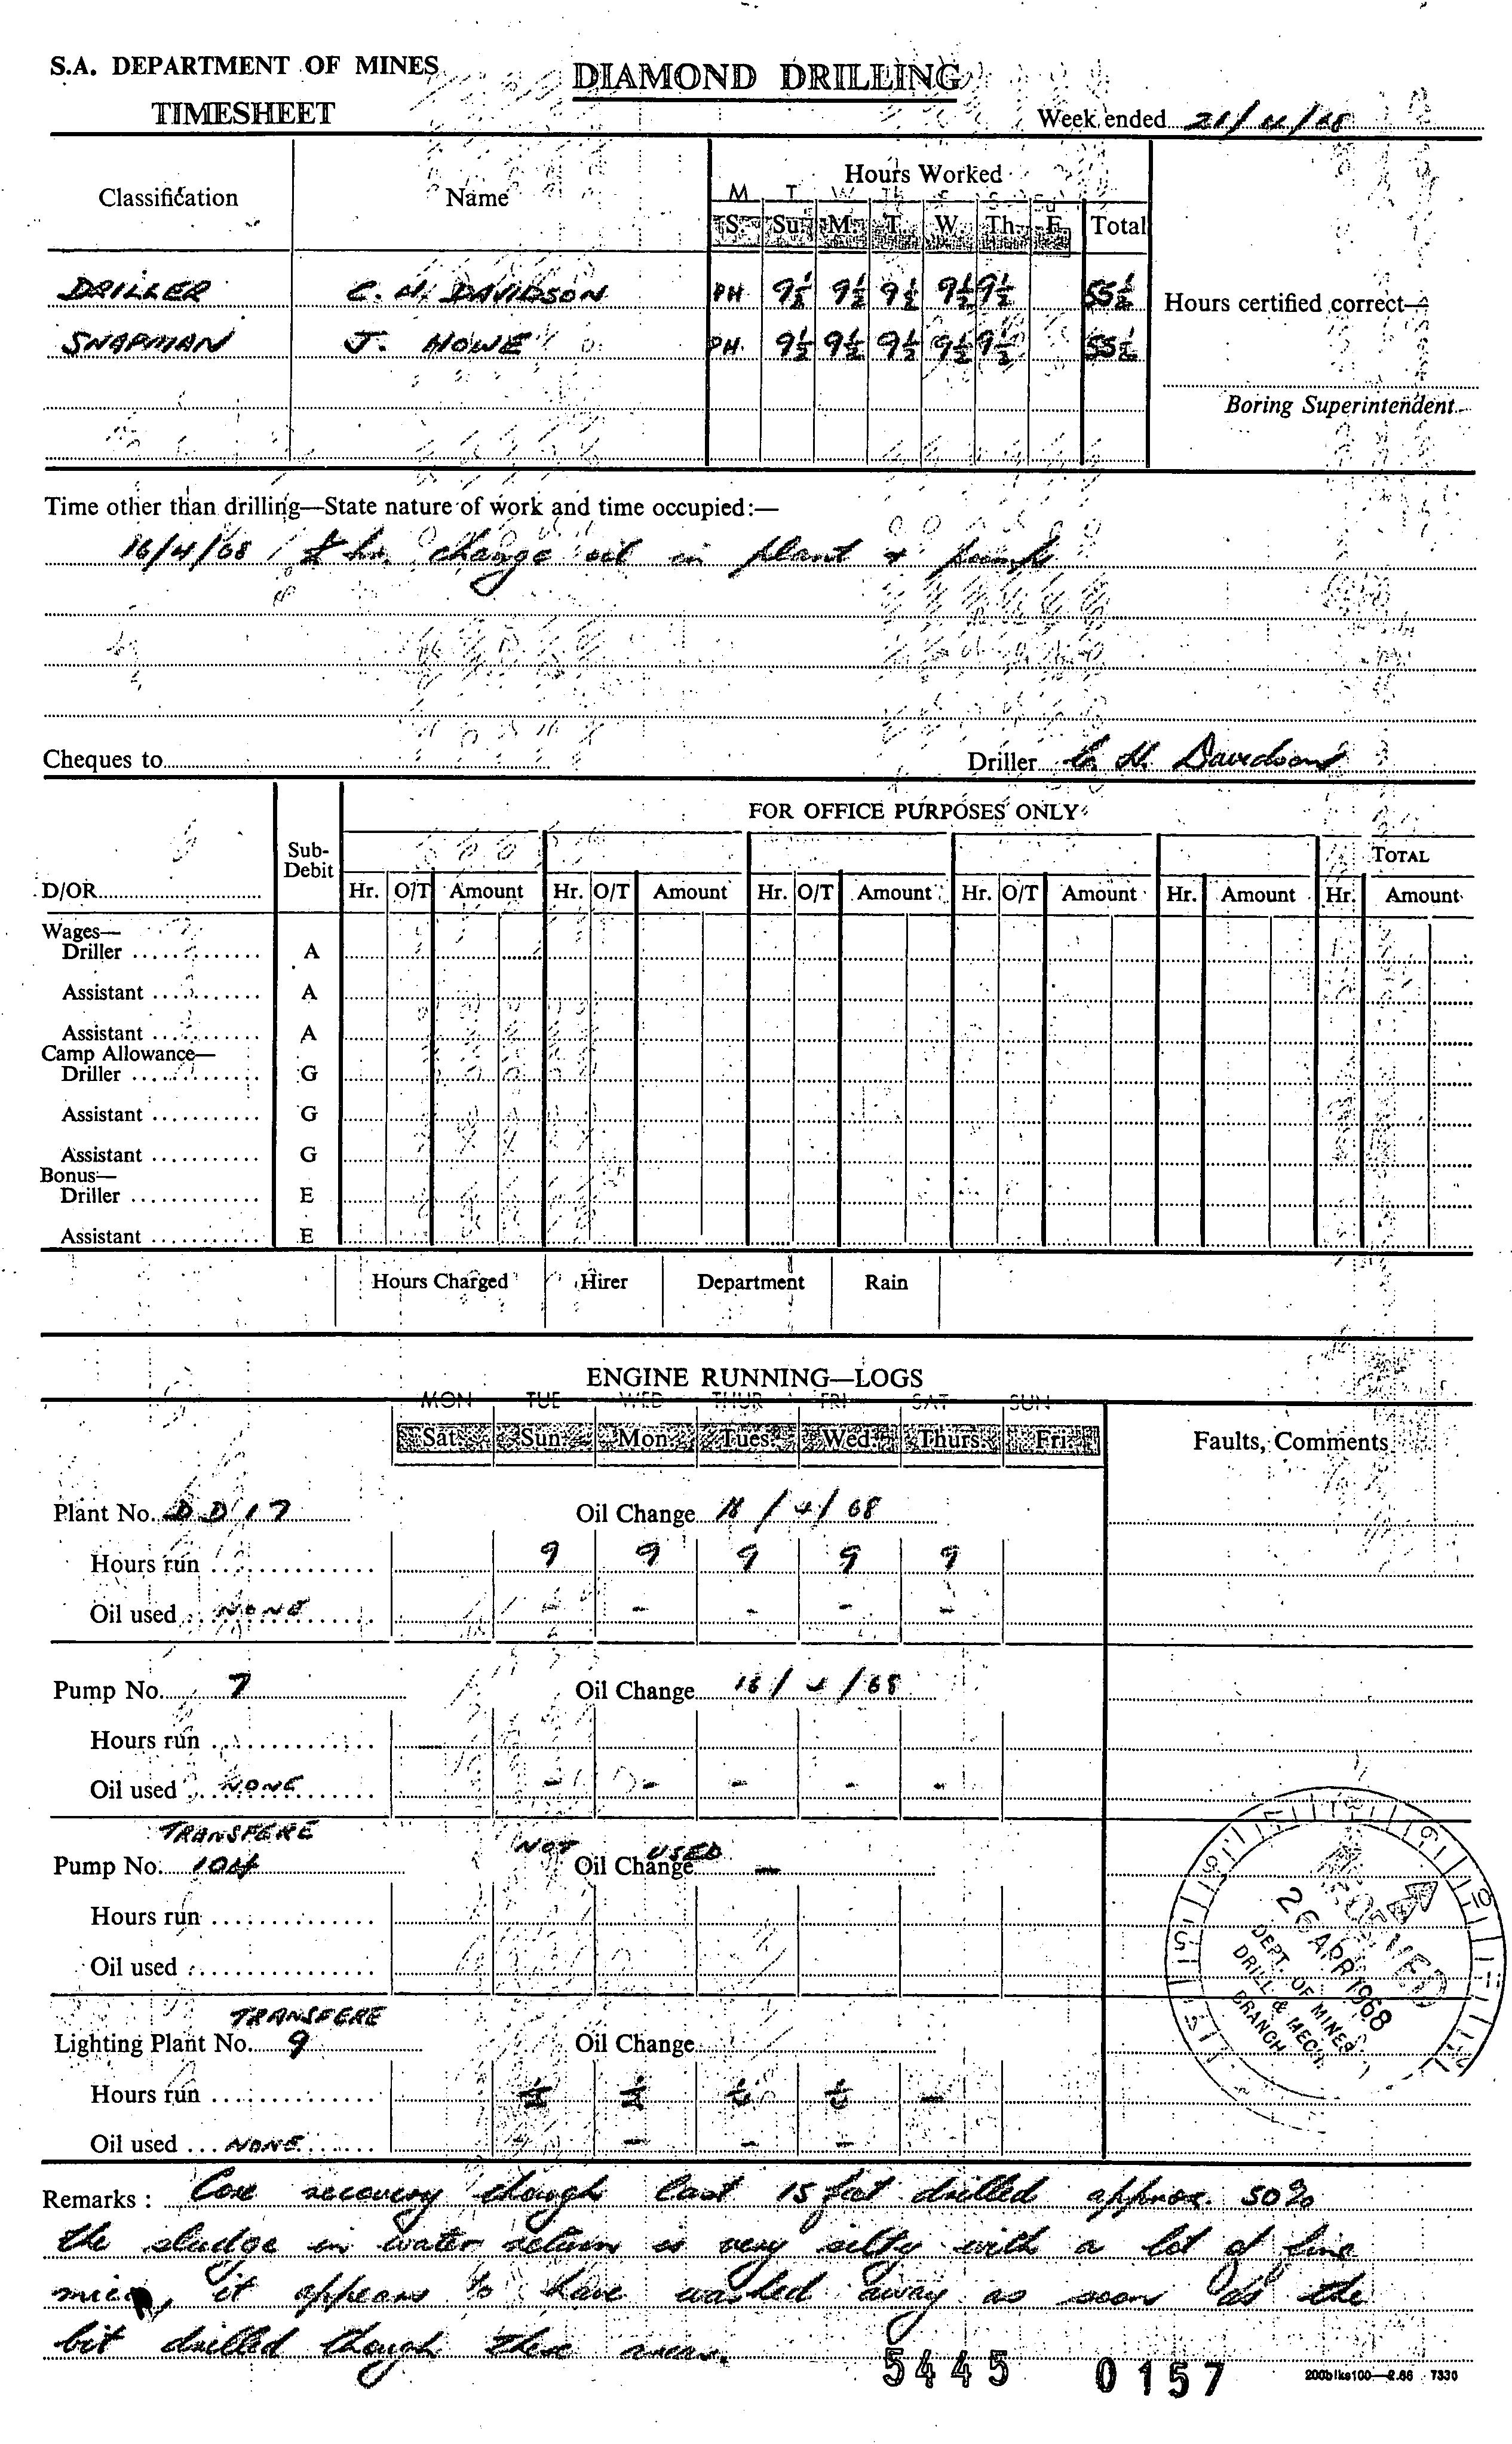 S.A. DEPARTMENT OF MINES
DIAMOND DRILLING
TIMESHEET
Week ended 21/4/68
Classification Name Hours Worked
M T W Th F S Su
S. Su. M. T. W. Th. F. Total
DRILLER C. H. DAVIDSON PH 9½ 9½ 9½ 9½ 9½ 55½
Hours certified correct—
SNAPMAN J. HOWE PH. 9½ 9½ 9½ 9½ 9½ 55½
Boring Superintendent.
Time other than drilling—State nature of work and time occupied:—
16/4/68 ½ hr. change oil in plant & pump
Cheques to Driller C. H. Davidson
FOR OFFICE PURPOSES ONLY
D/OR Sub-Debit TOTAL
Hr. O/T Amount Hr. O/T Amount Hr. O/T Amount Hr. O/T Amount Hr. Amount Hr. Amount
Wages—
Driller A
Assistant A
Assistant A
Camp Allowance—
Driller G
Assistant G
Assistant G
Bonus—
Driller E
Assistant E
Hours Charged Hirer Department Rain
ENGINE RUNNING—LOGS
MON TUE WED THUR FRI SAT SUN
Sat. Sun. Mon. Tues. Wed. Thurs. Fri. Faults, Comments
Plant No. DD 17 Oil Change /4/68
Hours run 9 9 9 9 9
Oil used NONE - - - - -
Pump No. 7 Oil Change 16/4/68
Hours run —
Oil used NONE - - - - -
TRANSFERE
Pump No. 104 NOT USED Oil Change —
Hours run
Oil used
TRANSFERE
Lighting Plant No. 9 Oil Change
Hours run ½ ½ ½ ½ —
Oil used NONE - - - -
RECEIVED
26 APR 1968
DEPT. OF MINES
DRILL & MECH.
BRANCH
Remarks: Core recovery though last 15 feet drilled approx. 50%
the sludge in water return is very silty with a lot of fine
mica, it appears to have washed away as soon as the
bit drilled though these areas.
5445 0157
200blks100—2.66 7330